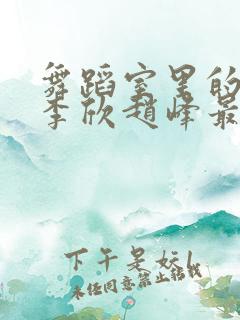 舞蹈室里的
李欣赵峰最
下午是妘l
未经同意禁止转载